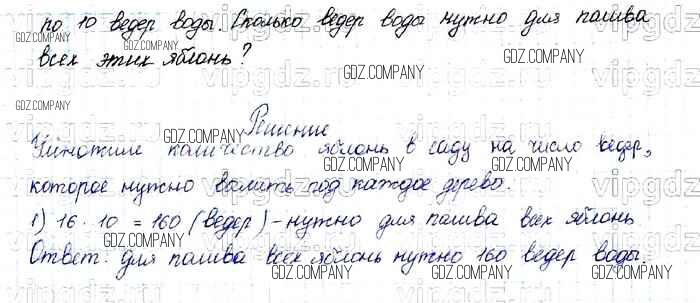 по 10 ведер воды. Сколько ведер воды нужно для полива
всех этих яблонь?
Решение
Умножите количество яблонь в саду на число ведер,
которое нужно вылить под каждое дерево.
1) 16 · 10 = 160 (ведер) - нужно для полива всех яблонь
Ответ: для полива всех яблонь нужно 160 ведер воды.
GDZ.COMPANY
GDZ.COMPANY
GDZ.COMPANY
GDZ.COMPANY
GDZ.COMPANY
GDZ.COMPANY
GDZ.COMPANY
GDZ.COMPANY
GDZ.COMPANY
GDZ.COMPANY
GDZ.COMPANY
vipgdz.ru
vipgdz.ru
vipgdz.ru